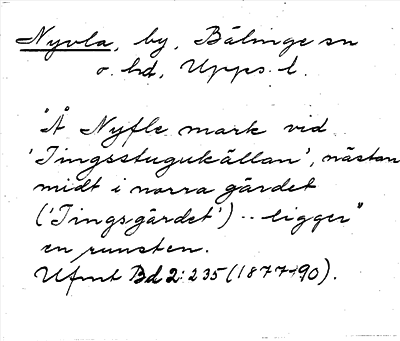 Nyvla, by, Bälinge sn
o. hd, Upps. l.
"Å Nyfle mark vid
'Tingsstugukällan', nästan
midt i norra gärdet
('Tingsgärdet') .. ligger"
en runsten.
Ufmt Bd 2: 235 (1877-90).